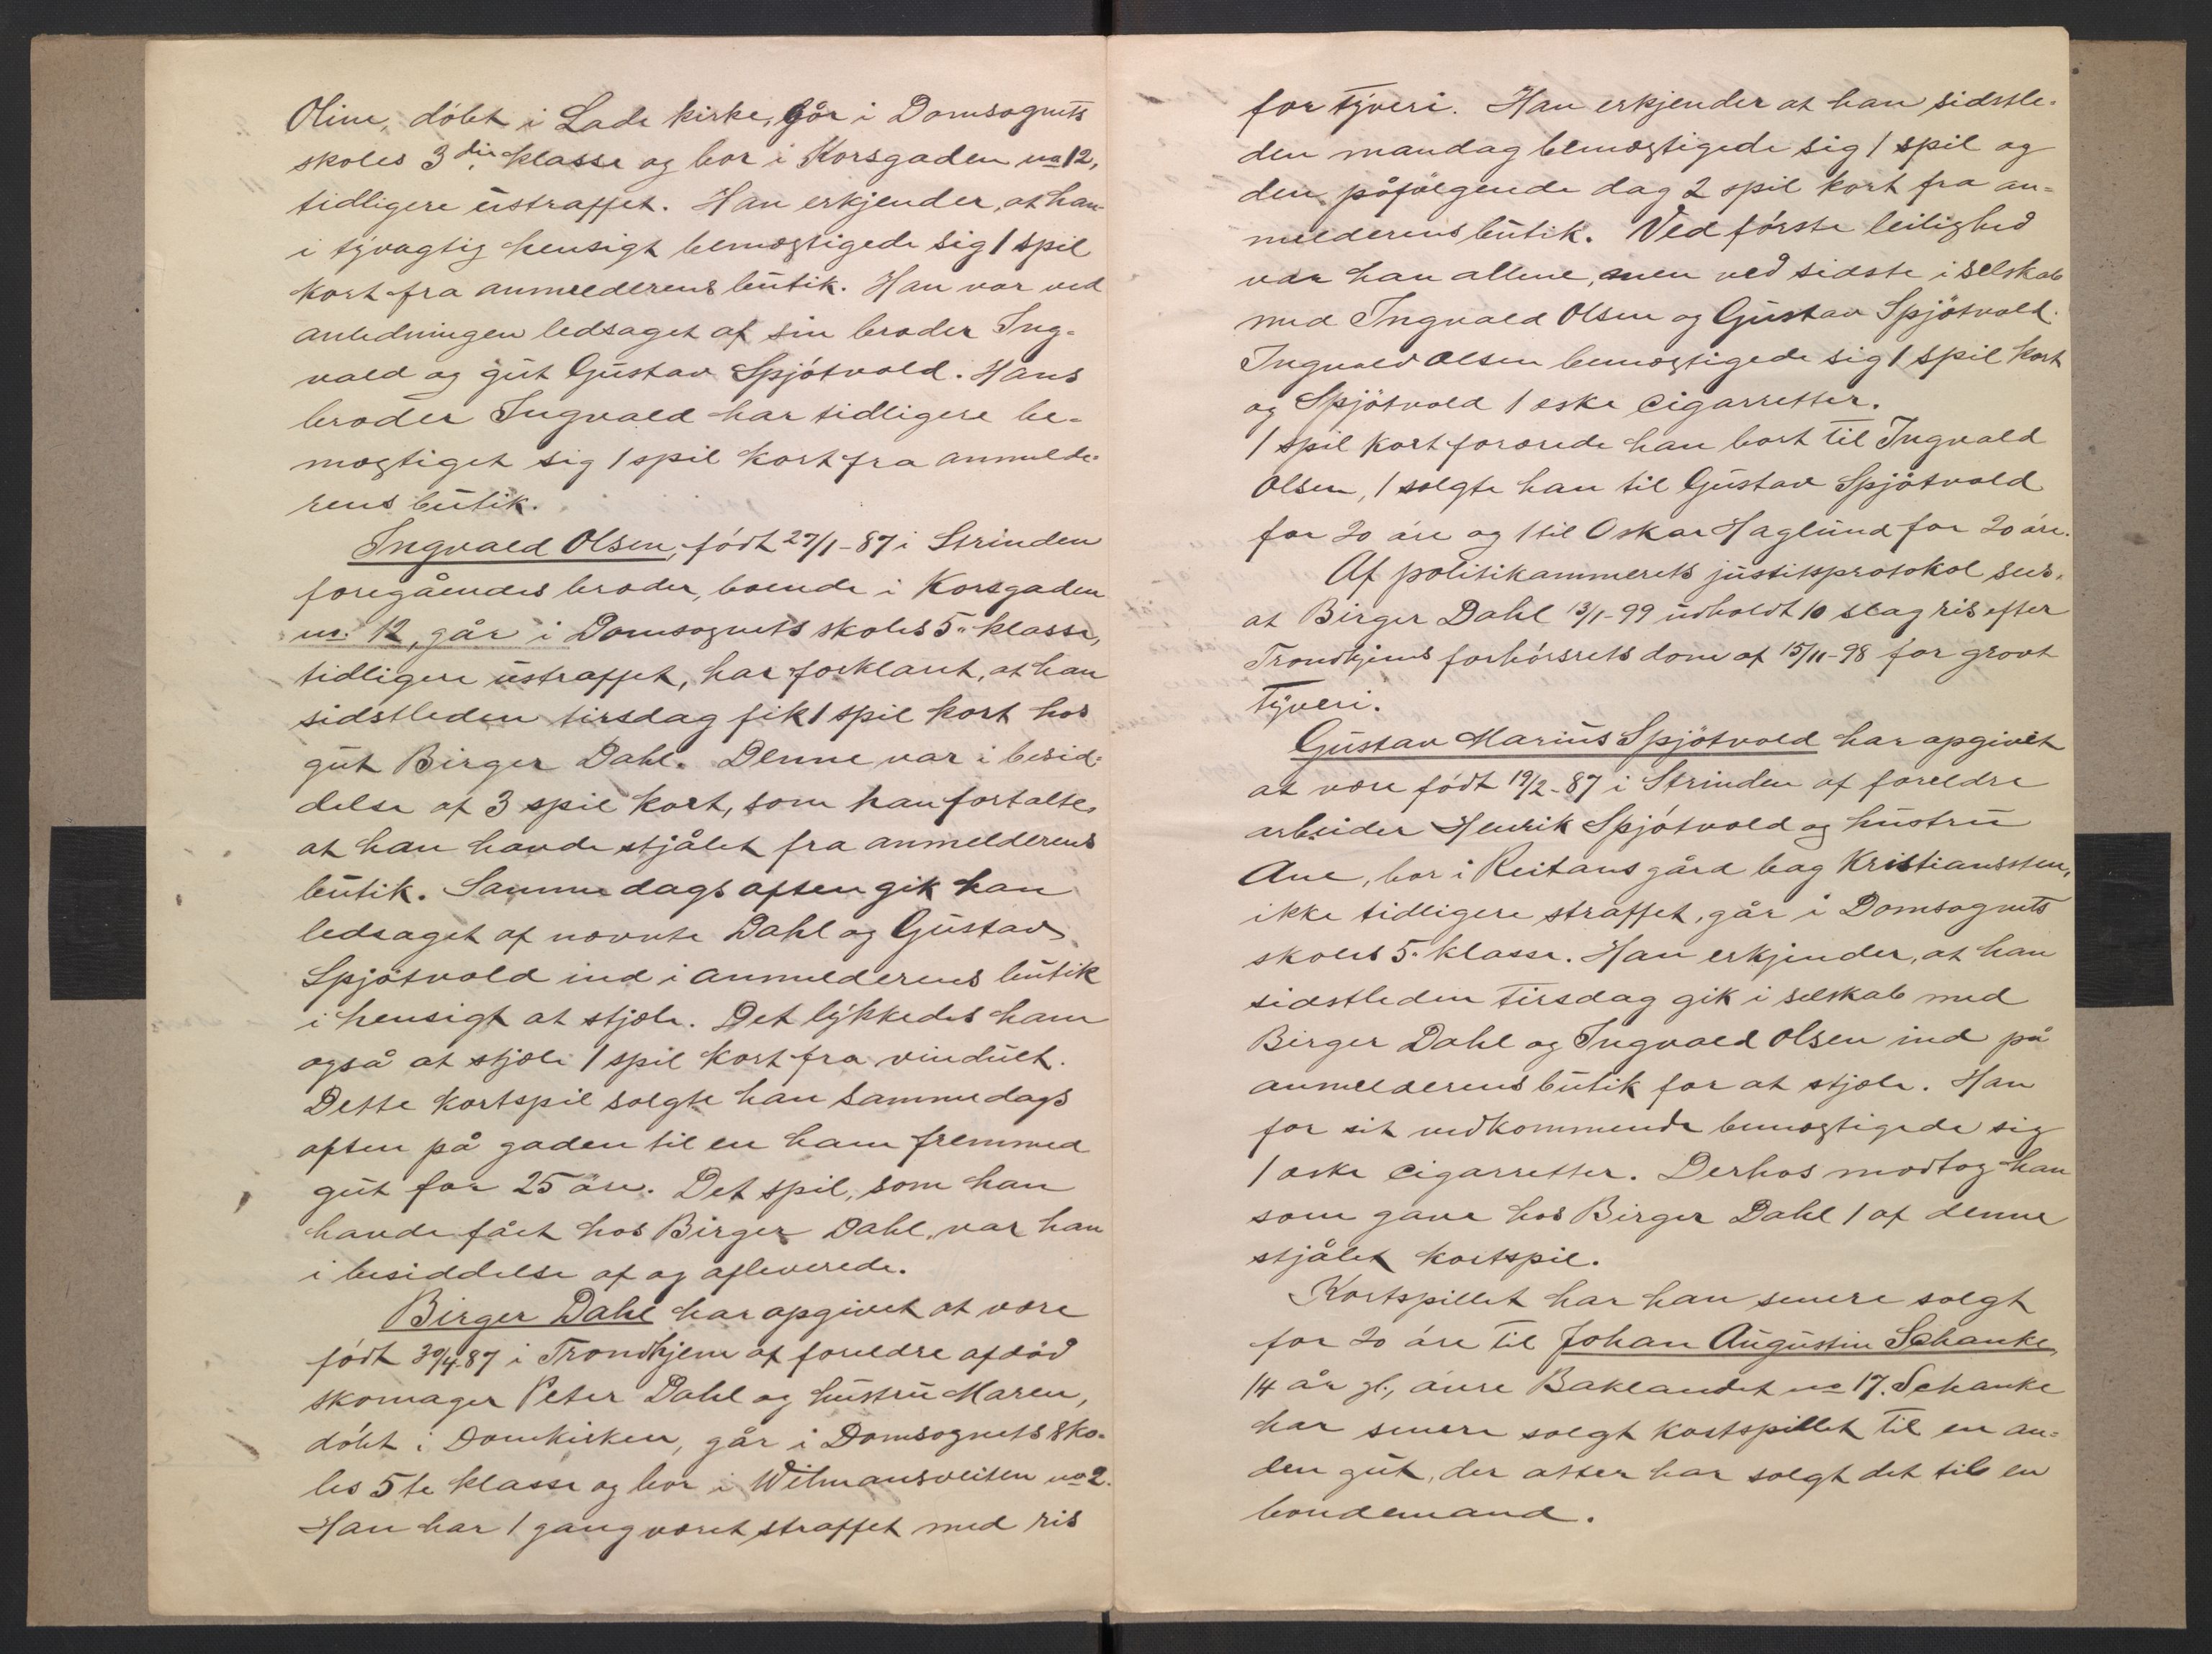 Oline, döbt i Lade kirke, går i Domsognets
skoles 3die klasse og bor i Korsgaden no 12,
tidligere ustraffet. Han erkjender, at han
i tyvagtig hensigt bemægtigede sig 1 spil
kort fra anmelderens butik. Han var ved
anledningen ledsaget af sin broder Ing-
vald og gut Gustav Spjötvold. Hans
broder Ingvald har tidligere be-
mægtiget sig 1 spil kort fra anmelde-
rens butik.
Ingvald Olsen, födt 27/1-87 i Strinden
foregåendes broder, boende i Korsgaden
no. 12, går i Domsognets skoles 5. klasse,
tidligere ustraffet, har forklaret, at han
sidstleden tirsdag fik 1 spil kort hos
gut Birger Dahl. Denne var i besid-
delse af 3 spil kort, som han fortalte,
at han havde stjålet fra anmelderens
butik. Samme dags aften gik han
ledsaget af nævnte Dahl og Gustav
Spjötvold ind i anmelderens butik
i hensigt at stjæle. Det lykkedes ham
også at stjæle 1 spil kort fra vinduet.
Dette kortspil solgte han samme dags
aften på gaden til en ham fremmed
gut for 25 öre. Det spil, som han
havde fået hos Birger Dahl, var han
i besiddelse af og afleverede.
Birger Dahl har opgivet at være
födt 30/4.87 i Trondhjem af foreldre afdöd
skomager Peter Dahl og hustru Maren,
döbt i Domkirken, går i Domsognets sko-
les 5te klasse og bor i Wilmansveiten no 2.
Han har 1 gang været straffet med ris
for tyveri. Han erkjender at han sidstle-
den mandag bemægtigede sig 1 spil og
den påfölgende dag 2 spil kort fra an-
melderens butik. Ved förste leilighed
var han allene, men ved sidste i selskab
med Ingvald Olsen og Gustav Spjötvold.
Ingvald Olsen bemægtigede sig 1 spil kort
og Spjötvold 1 eske cigarretter.
1 spil kort forærede han bort til Ingvald
Olsen, 1 solgte han til Gustav Spjötvold
for 20 öre og 1 til Oskar Haglund for 20 öre.
Af politikammerets justitsprotokol sees,
at Birger Dahl 13/1-99 udholdt 10 slag ris efter
Trondhjems forhörsrets dom af 15/11-98 for grovt
tyveri.
Gustav Marius Spjötvold har opgivet
at være födt 19/2-87 i Strinden af foreldre
arbeider Henrik Spjötvold og hustru
Ane, bor i Reitans gård bag Kristianssten,
ikke tidligere straffet, går i Domsognets
skoles 5. klasse. Han erkjender, at han
sidstleden tirsdag gik i selskab med
Birger Dahl og Ingvald Olsen ind på
anmelderens butik for at stjæle. Han
for sit vedkommende bemægtigede sig
1 æske cigarretter. Derhos modtog han
som gave hos Birger Dahl 1 af denne
stjålet kortspil.
Kortspillet har han senere solgt
for 20 öre til Johan Augustin Schanke,
14 år gl., övre Baklandet no 17. Schanke
har senere solgt kortspillet til en an-
den gut, der atter har solgt det til en
bondemand.